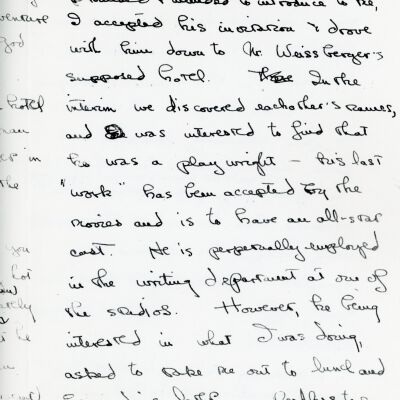 I accepted his invitation & drove
venture with him down to Mr. Weissberger's
god supposed hotel. In the
hotel interim we discovered eachother's names,
and was interested to find that
in he was a playwright – his last
the "work" has been accepted by the
movies and is to have an all-star
you cast. He is perpetually-employed
hot in the writing department at one of
the studios. However, he being
he interested in what I was doing,
asked to take me out to lunch and